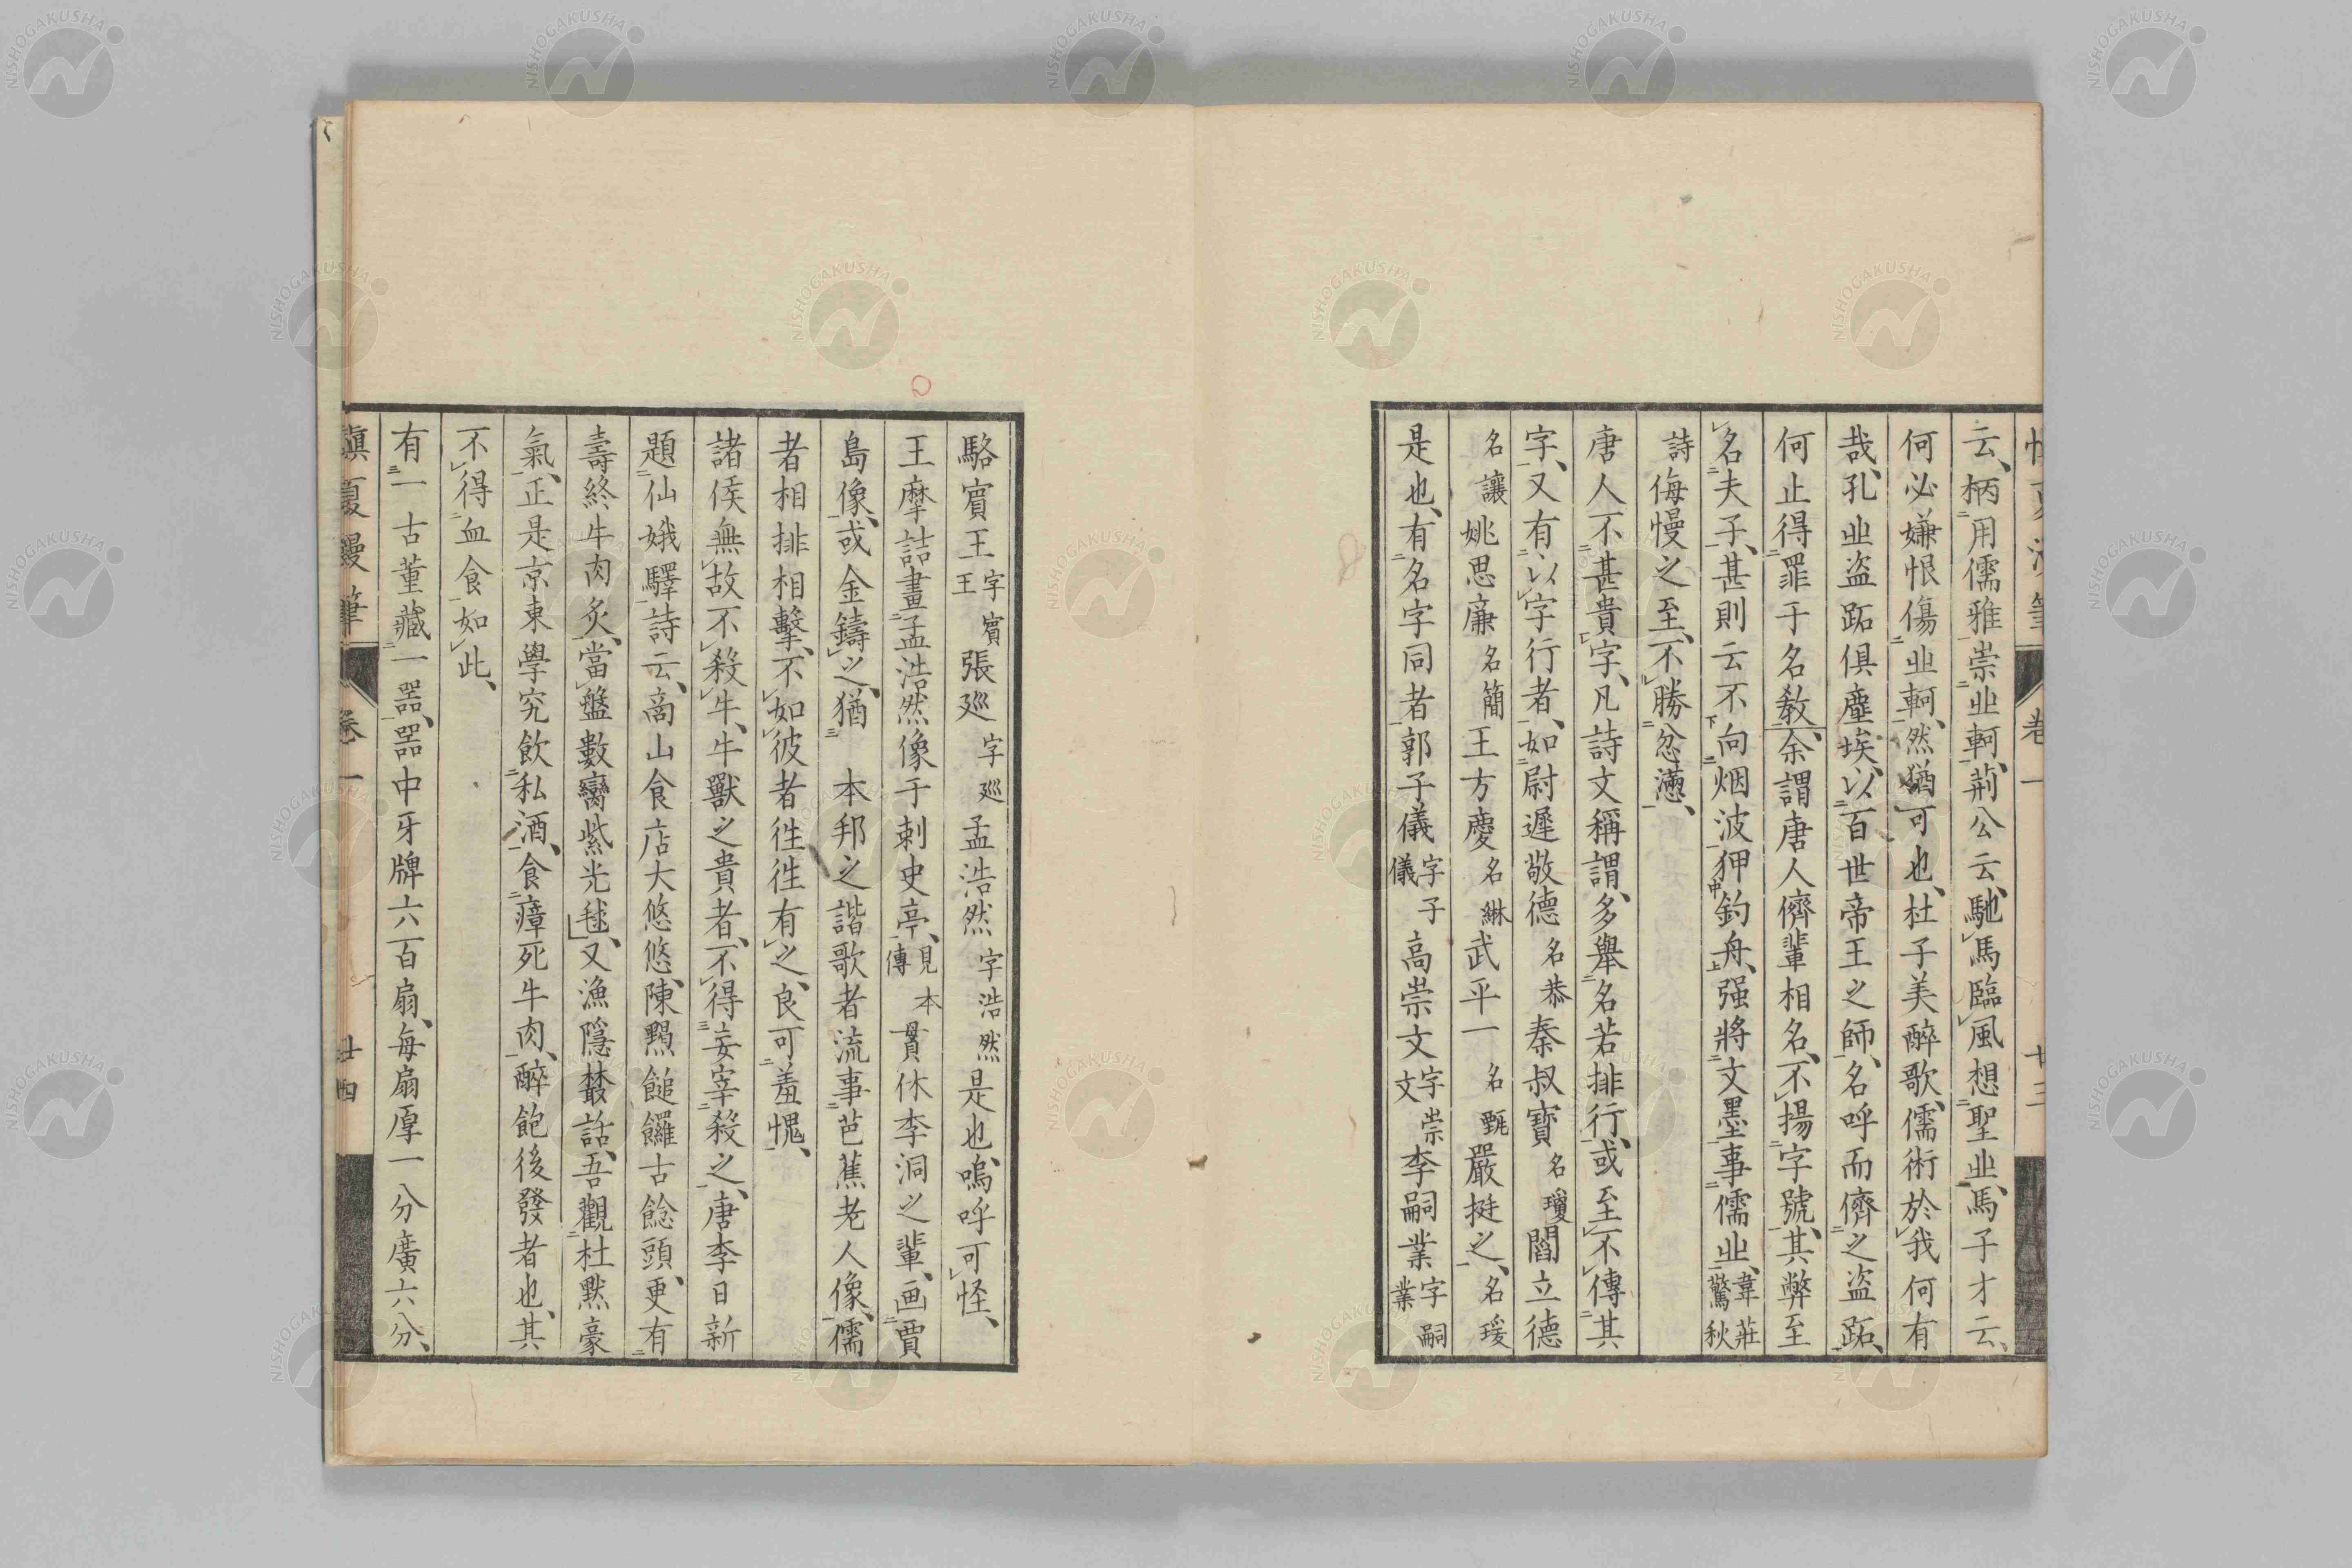 云、柄用儒雅崇丘軻、荊公云、馳馬臨風想聖丘、馬子才云、
何必嫌恨傷丘軻、然猶可也、杜子美醉歌、儒術於我何有
哉、孔丘盜跖俱塵埃、以百世帝王之師、名呼而儕之盜跖、
何止得罪于名教、余謂唐人儕輩相名、不揚字號、其弊至
名夫子、甚則云不向烟波狎釣舟、强將文墨事儒丘、韋莊驚秋
詩侮慢之至、不勝忿懣、
唐人不甚貴字、凡詩文稱謂、多舉名若排行、或至不傳其
字、又有以字行者、如尉遲敬德名恭秦叔寶名瓊閻立德
名讓姚思廉名簡王方慶名綝武平一名甄嚴挺之、名瑗
是也、有名字同者郭子儀字子儀高崇文字崇文李嗣業字嗣業
駱賓王字賓王張巡字巡孟浩然字浩然是也、嗚呼可怪、
王摩詰畫孟浩然像于刺史亭、見本傳貫休李洞之輩、画賈
島像、或金鑄之、猶 本邦之諧歌者流事芭蕉老人像、儒
者相排相擊、不如彼者徃徃有之、良可羞愧、
諸侯無故不殺牛、牛獸之貴者、不得妄宰殺之、唐李日新
題仙娥驛詩云、啇山食店大悠悠、陳黦䭔饠古餕頭、更有
壽終牛肉炙、當盤數臠紫光毬、又漁隱叢話、吾觀杜默豪
氣、正是京東學究飲私酒、食瘴死牛肉、醉飽後發者也、其
不得血食如此、
有一古董藏一噐、噐中牙牌六百扇、每扇厚一分廣六分、
慎夏漫筆 卷一 廿四
NISHOGAKUSHA